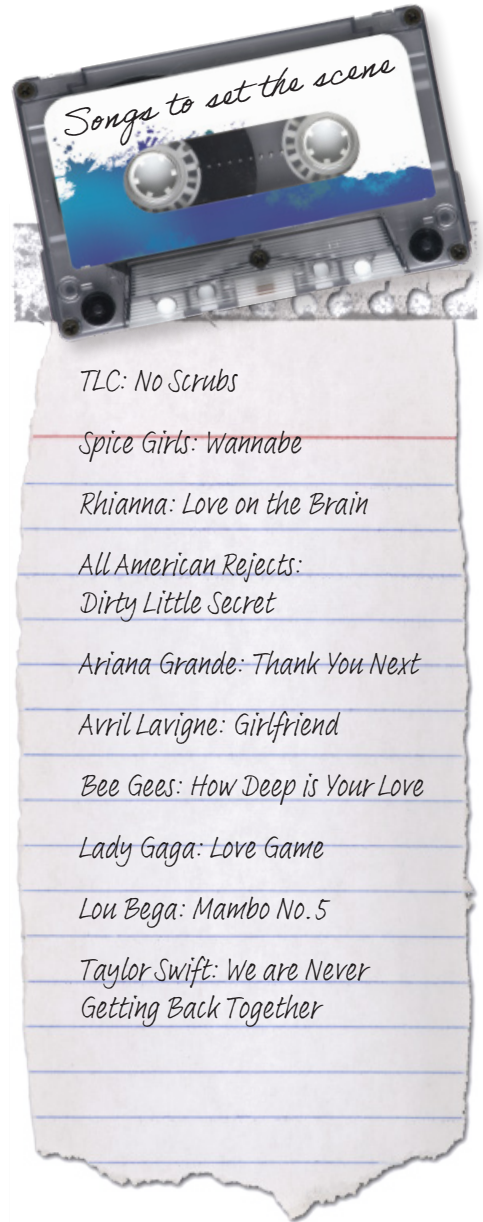 Songs to set the scene
TLC: No Scrubs
Spice Girls: Wannabe
Rhianna: Love on the Brain
All American Rejects:
Dirty Little Secret
Ariana Grande: Thank You Next
Avril Lavigne: Girlfriend
Bee Gees: How Deep is Your Love
Lady Gaga: Love Game
Lou Bega: Mambo No.5
Taylor Swift: We are Never
Getting Back Together